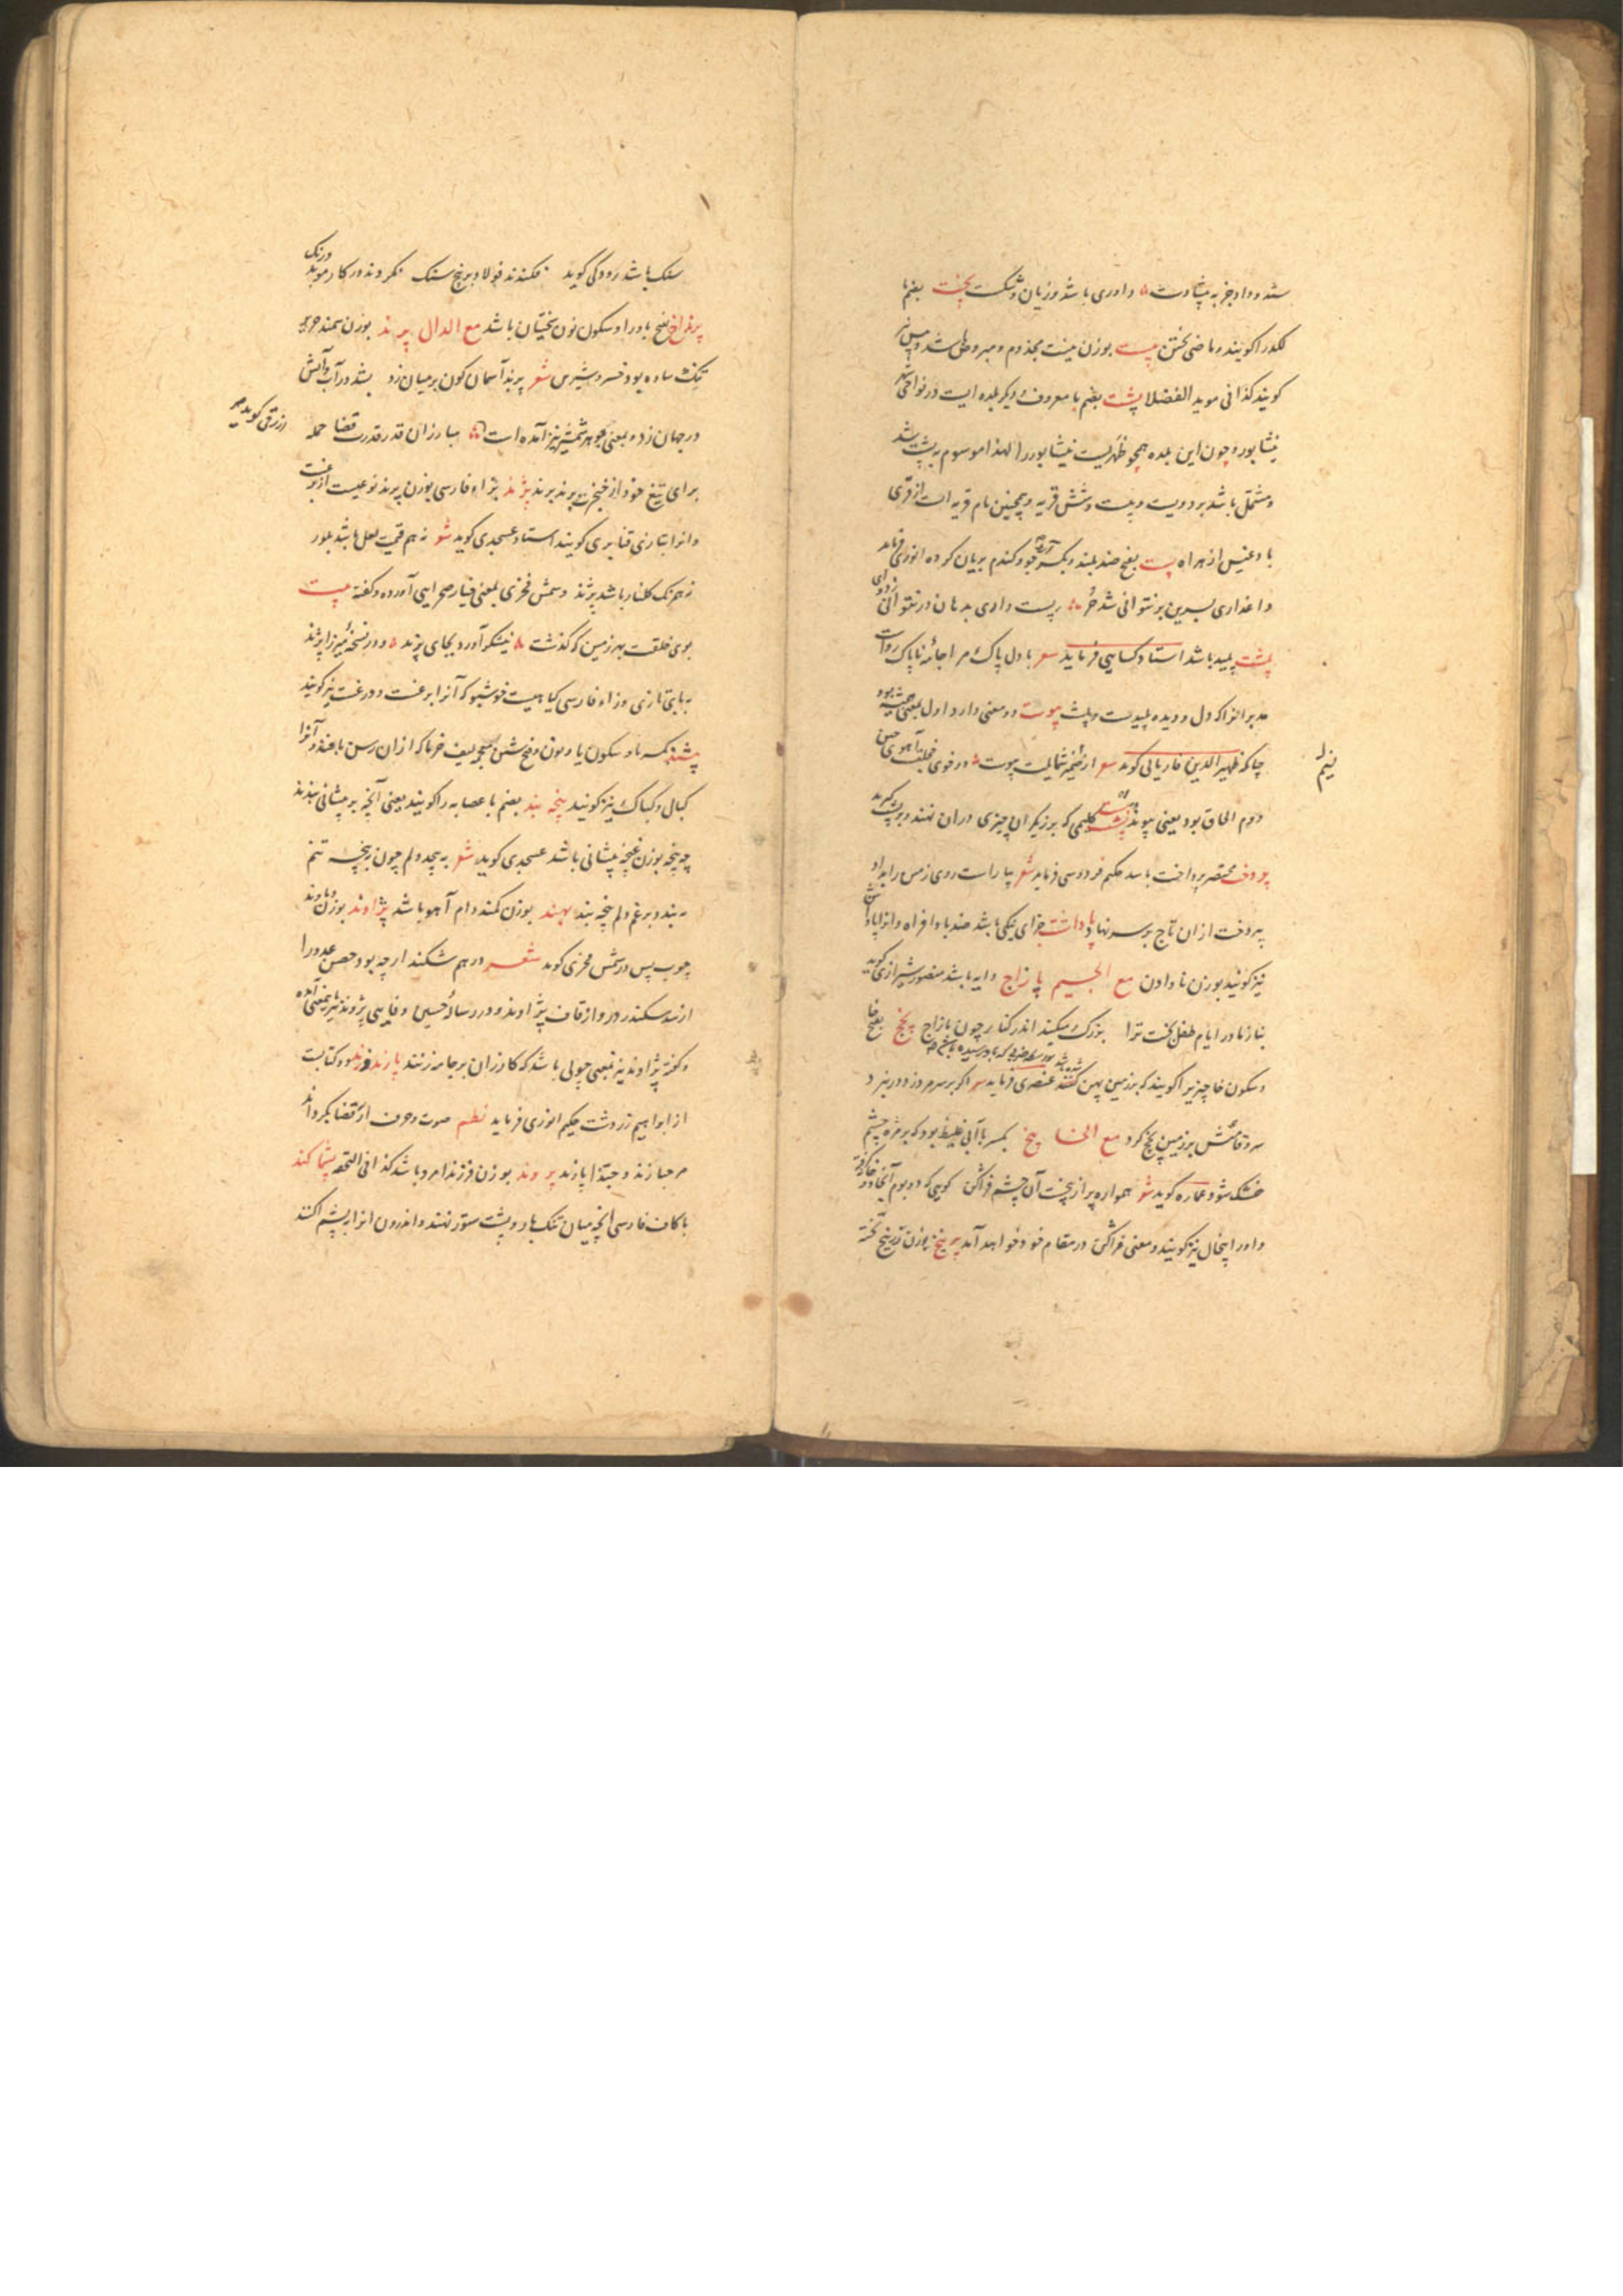 ستد و داد جز به پیشادست داوری باشد و زیان و شکست پخت بضم با
لکد را کویند و ماضی پختن پیست بوزن نیست مجذوم و مبروص باشد و پیس نیز
کویند کذا فی موید الفضلا پشت بضم با معروف و دیکر بلده ایست در نواحی شهر
نیشابور و چون این بلده همچو ظهریست نیشابور را لهذا موسوم به پشت شد
و مشتمل باشد بر دویست و بیست و شش قریه و همچنین نام قریه است از قرای
بادغیس از هراه پست بفتح ضد بلند و بکسر آرد جو و کندم بریان کرده انوری فرماید
داعداری بسرین بر نتوانی شد حر پست داری بدهان در نتوانی زد نای
پلشت پلید باشد استاد کسایی فرماید شعر با دل پاک مرا جامه ناپاک رواست
بد مر انرا که دل و دیده پلیدست و پلشت پیوست دو معنی دارد اول بمعنی همیشه بود
چنانکه ظهیر الدین فاریابی کوید شعر از ضمیر شمالیت پیوست در خوی خجلت آهوی چین
دوم الحاق بود یعنی پیوند کلیمی که برزیکران چیزی دران نهند و بر پشت کیرند
پردخت مختصر پرداخت باشد حکیم فردوسی فرماید شعر بیاراست روی زمین را بداد
بپردخت ازان تاج بر سر نهاد پاداشت جزای نیکی باشد ضد باد افراه و انرا پاداش
نیز کویند بوزن نادادن مع الجیم پازاج دایه باشد منصور شیرازی کوید
بناز مادر ایام طفل بخت ترا بزرک میکند اندر کنار چون پازاج پخج بفتح با
و سکون خا چیزیرا کویند که بر زمین پهن کشته عنصری فرماید شعر اکر بر سر مرد زد در نبرد
سر و قامتش بر زمین پخج کرد مع الخا پیخ بکسر با آبی غلیظ بود که بر مژه چشم
خشک شود عماره کوید شعر همواره پر از پیخست آن چشم فراکن کویی که دو بوم آنجا دو خانه کرفته
و اورا پیخال نیز کویند و معنی فراکن در مقام خود خواهد آمد پرنیخ بوزن زرنیخ تخته
نیم
سنک باشد رودکی کوید فکندند فولاد بر نخ سنک نکردند در کار موبد درنک
پرنداخ بفتح با و را و سکون نون سختیان باشد مع الدال پرند بوزن سمند حریر
تنک ساده بود خسرو شیرین شعر پرند آسمان کون بر میان زد بشد در آب و آتش
در جهان زد و بمعنی جوهر شمشیر نیز آمده است مبارزان قدر قدرت قضا حمله
ازرقی کوید
برای تیغ خود از خنجر برند پرند پژند بزاء فارسی بوزن پرند نوعیست از برغست
و انرا بتازی قنابری کویند استاد عسجدی کوید شعر نه هم قیمت لعل باشد بلور
نه همرنک کلنار باشد پژند و شمس فخری بمعنی خیار صحرایی آورده و کفته بیت
بوی خلقت بهر زمین که کذشت نیشکر آورد بجای پژند و در نسخه میرزا پژند
به بای تازی و زاء فارسی کیاهیست خوشبو که آنرا برغست و درغست نیز کویند
پیشند بکسر با و سکون یا و نون و فتح شین معجمه لیف خرما که ازان رسن بافند و آنرا
کبال و کباک نیز کویند پنجه بند بضم با عصابه را کویند یعنی آنچه بر پیشانی بندند
چه پنجه بوزن غنچه پیشانی باشد عسجدی کوید شعر به پیچد دلم چون ز پنجه بتم
به بندد بر غم دلم پنجه بند پهند بوزن کمند دام آهو باشد پژاوند بوزن دماوند
چوب پس در شمس فخری کوید شعر درهم شکند ارچه بود حصن عدو را
از سد سکندر در و از قاف پژاوند و در رساله حسین وفایی پژوند نیز باینمعنی آمده
و کفته پژاوند نیز بمعنی چوبی باشد که کازران بر جامه زنند پازند زند و کتابست
از ابراهیم زردشت حکیم انوری فرماید نظم صوت و حرف ار قضا بکرداند
مرحبا زند و حبذا پازند پروند بوزن فرزند امرود باشد کذا فی التحفه پشماکند
با کاف فارسی آنچه میان تنک بار و پشت ستور نهند و اندرون انرا پر پشم کنند